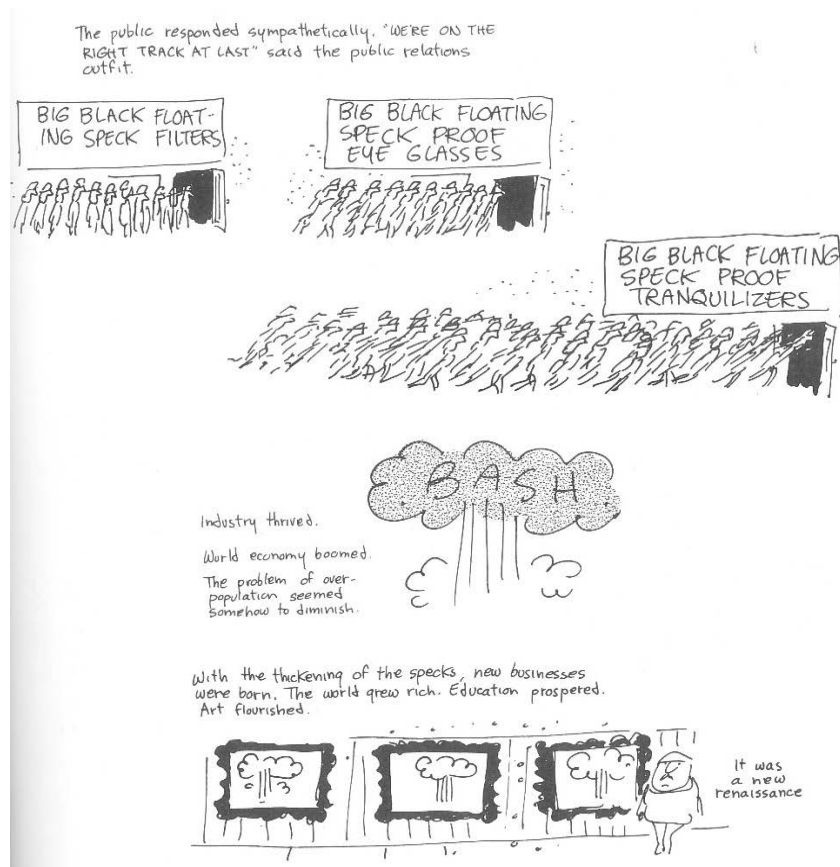 The public responded sympathetically. "WE'RE ON THE
RIGHT TRACK AT LAST" said the public relations
outfit.
BIG BLACK FLOAT-
ING SPECK FILTERS
BIG BLACK FLOATING
SPECK PROOF
EYE GLASSES
BIG BLACK FLOATING
SPECK PROOF
TRANQUILIZERS
BASH
Industry thrived.
World economy boomed.
The problem of over-
population seemed
somehow to diminish.
With the thickening of the specks, new businesses
were born. The world grew rich. Education prospered.
Art flourished.
It was
a new
renaissance